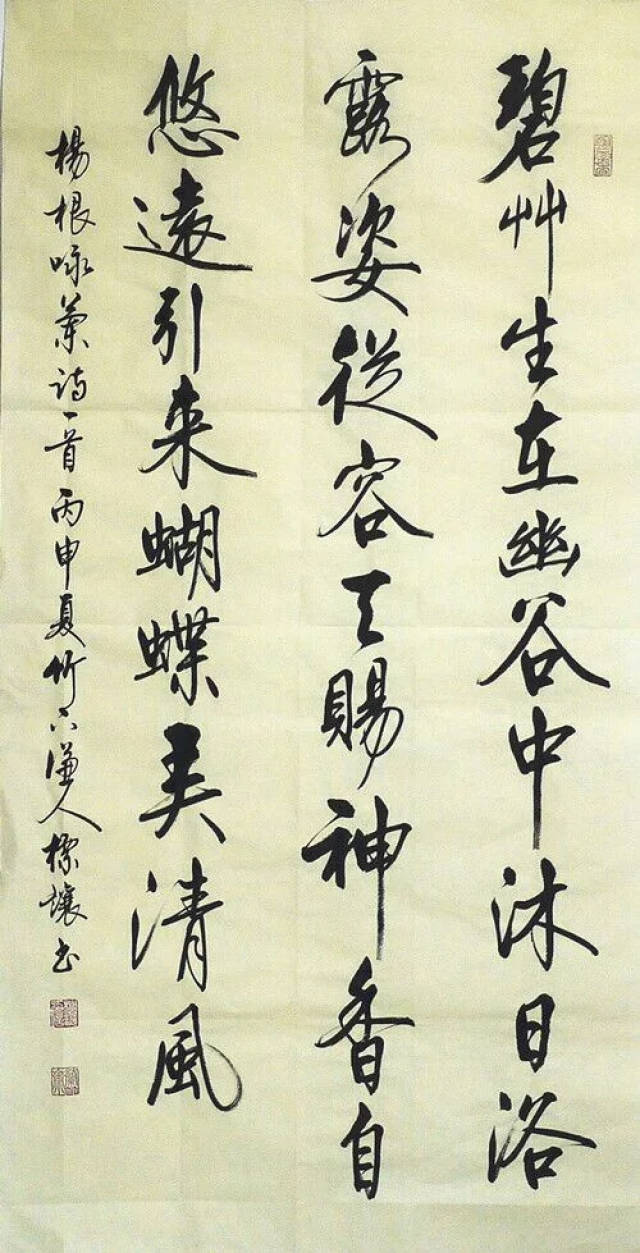 碧艸生在幽谷中沐日浴
露姿從容天賜神香自
悠遠引来蝴蝶清風
楊根咏蘭诗一首丙申夏竹下谦人书